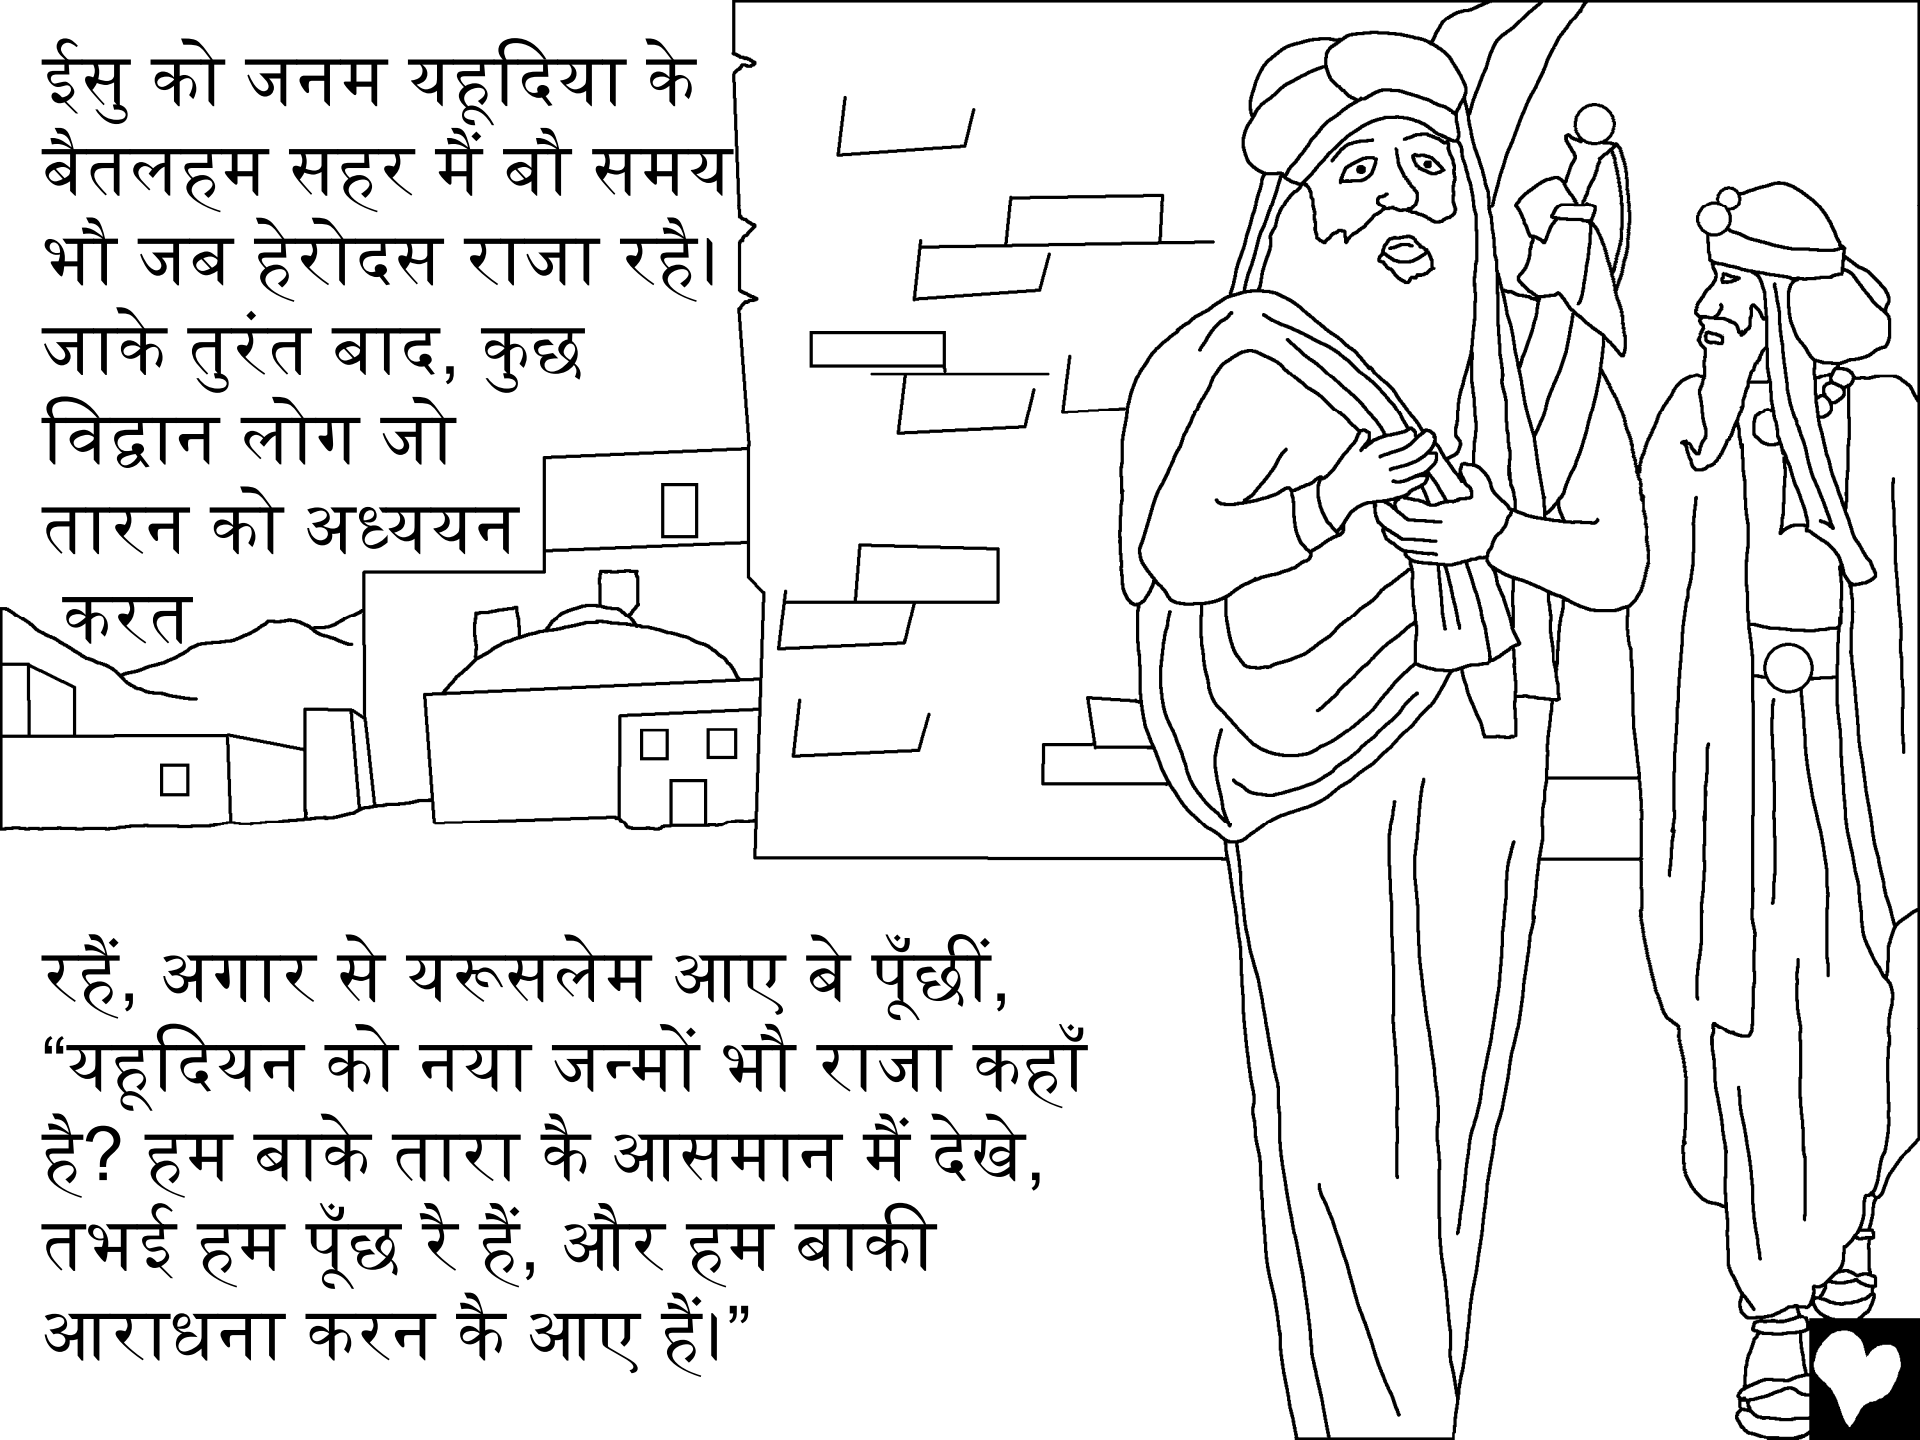 ईसु को जनम यहूदिया के
बैतलहम सहर मैं बौ समय
भौ जब हेरोदस राजा रहै।
जाके तुरंत बाद, कुछ
विद्वान लोग जो
तारन को अध्ययन
करत
रहैं, अगार से यरूसलेम आए बे पूँछीं,
“यहूदियन को नया जन्मों भौ राजा कहाँ
है? हम बाके तारा कै आसमान मैं देखे,
तभई हम पूँछ रै हैं, और हम बाकी
आराधना करन कै आए हैं।”